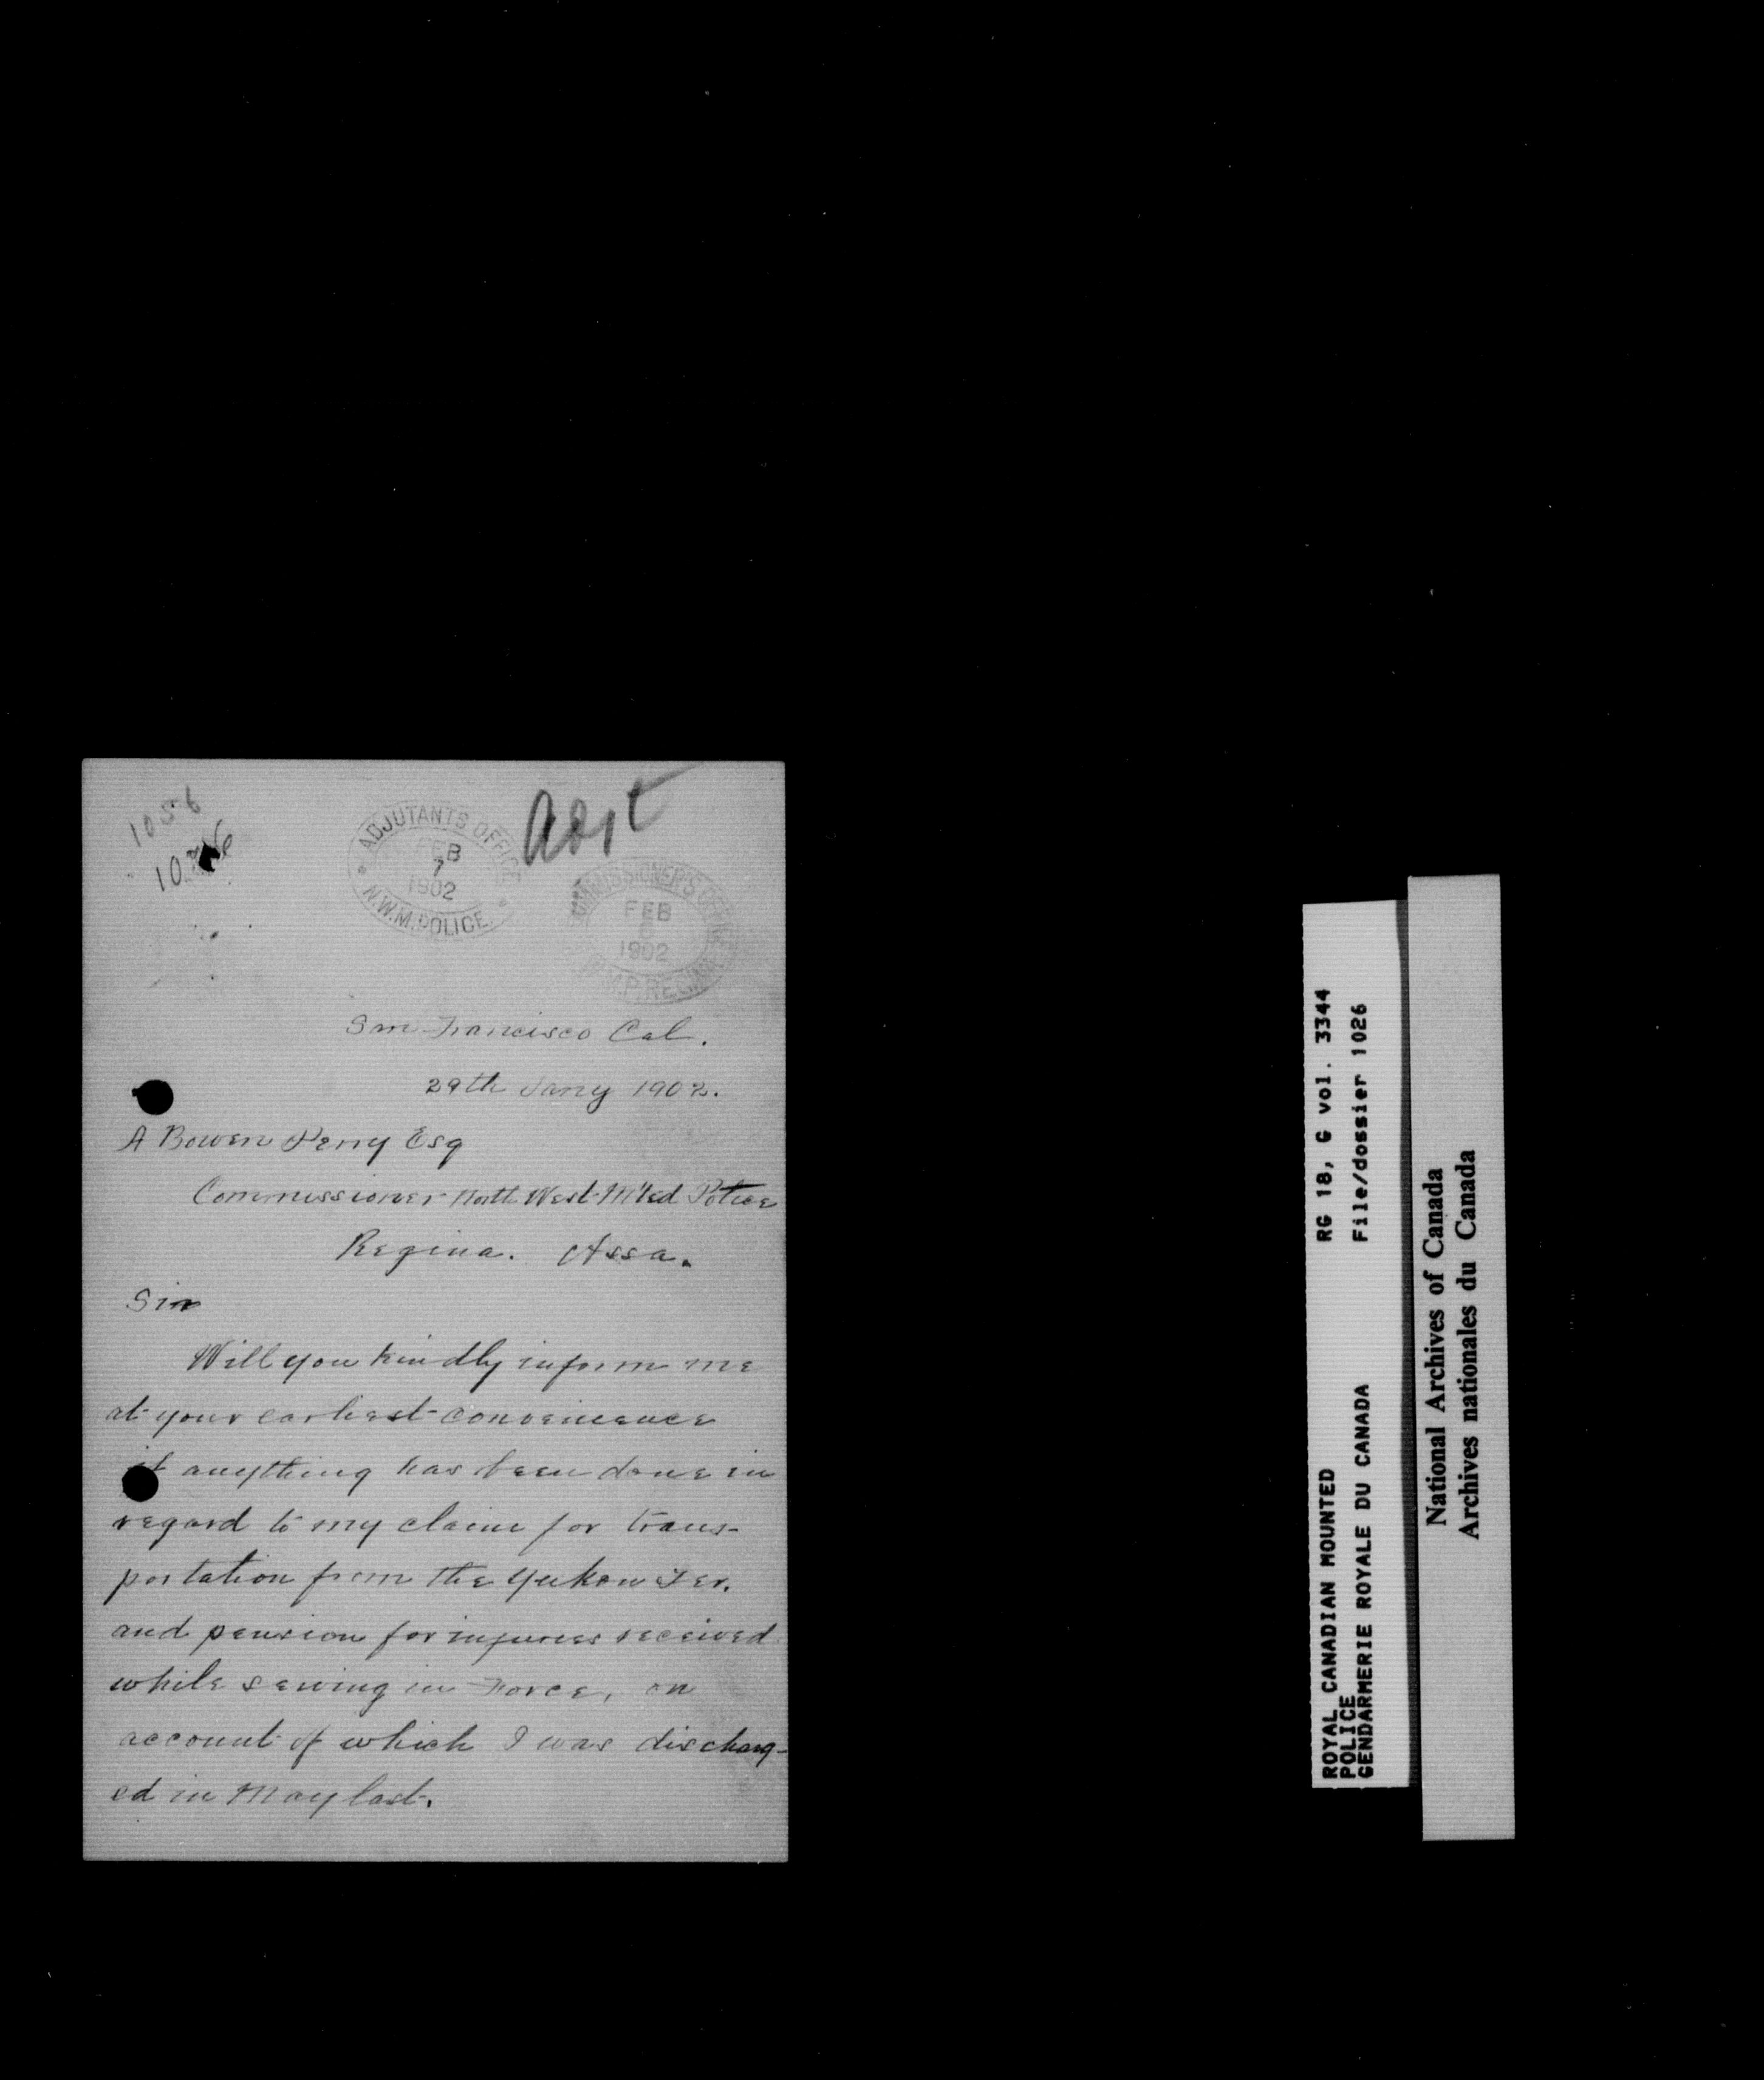 1056
ADJUTANTS OFFICE
FEB
7
1902
N.W.M. POLICE.
COMMISSIONER'S OFFICE
FEB
6
1902
San Francisco Cal.
29th Jany 1902.
A Bowen Perry Esq
Commissioner North West M'ted Police
Regina. Assa.
Sir
Will you kindly inform me
at your earliest convenience
if anything has been done in
regard to my claim for trans-
portation from the Yukon Ter.
and pension for injuries received
while serving in Force, on
account of which I was discharg-
ed in May last.
ROYAL CANADIAN MOUNTED
POLICE
GENDARMERIE ROYALE DU CANADA
RG 18, G vol. 3344
File/dossier 1026
National Archives of Canada
Archives nationales du Canada